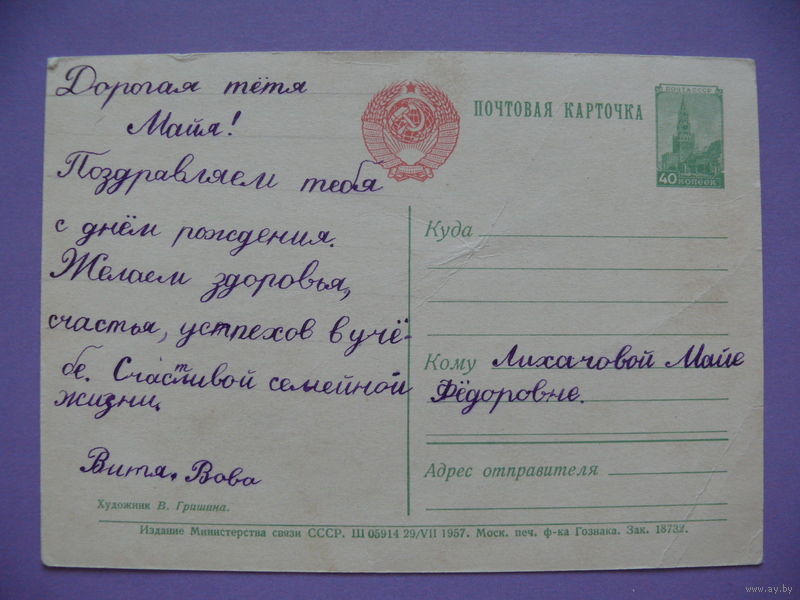 Дорогая тётя
Майя!
Поздравляем тебя
с днём рождения.
Желаем здоровья,
счастья, успехов в учё-
бе. Счастливой семейной
жизни.
Витя, Вова
Художник В. Гришина.
ПОЧТОВАЯ КАРТОЧКА
ПОЧТА СССР
40 КОПЕЕК
Куда
Кому Лихачовой Майе
Фёдоровне.
Адрес отправителя
Издание Министерства связи СССР. Ш 05914 29/VII 1957. Моск. печ. ф-ка Гознака. Зак. 18732.
www.ay.by